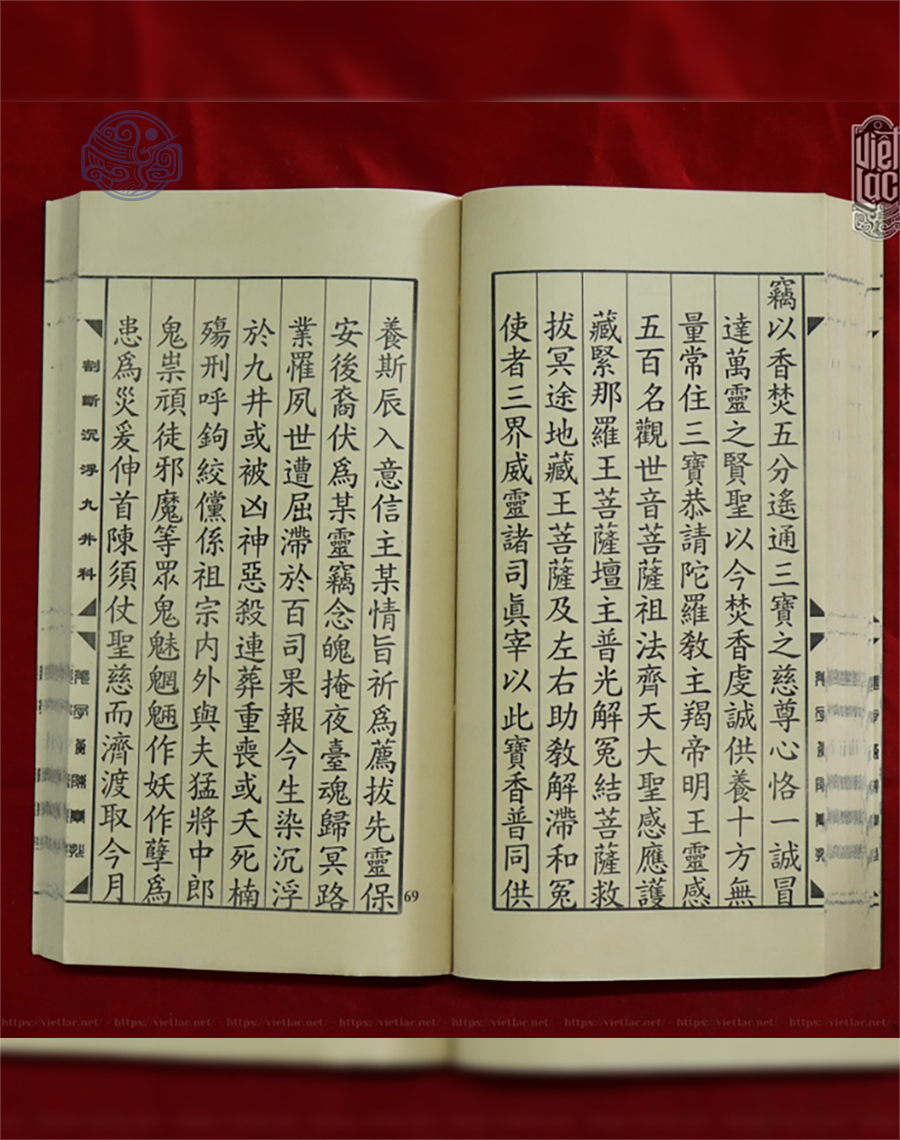 Việt
Lạc
竊以香焚五分遙通三寶之慈尊心恪一誠冒
達萬靈之賢聖以今焚香虔誠供養十方無
量常住三寶恭請陀羅敎主羯帝明王靈感
五百名觀世音菩薩祖法齊天大聖感應護
藏緊那羅王菩薩壇主普光解冤結菩薩救
拔冥途地藏王菩薩及左右助敎解滯和冤
使者三界威靈諸司眞宰以此寶香普同供
養斯辰入意信主某情旨祈爲薦拔先靈保
安後裔伏爲某靈竊念魄掩夜臺魂歸冥路
業罹夙世遭屈滯於百司果報今生染沉浮
於九井或被凶神惡殺連葬重喪或夭死楠
殤刑呼鉤絞儻係祖宗內外與夫猛將中郎
鬼祟頑徒邪魔等眾鬼魅魍魎作妖作孽爲
患爲災爰伸首陳須仗聖慈而濟渡取今月
割斷沉浮九井科
69
https://vietlac.net/ - https://vietlac.net/ - https://vietlac.net/ - https://vietlac.net/ - https://vietlac.net/ - https://vietlac.net/ - https://vietlac.net/ - https://vietlac.net/